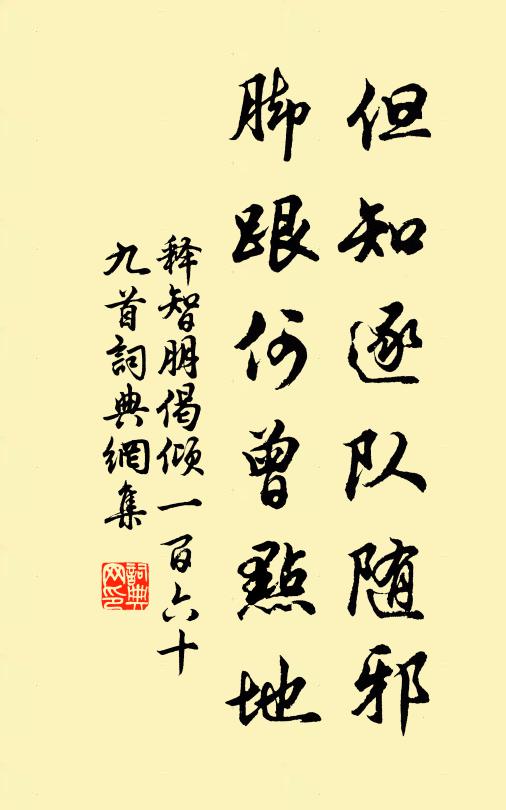 但知逐队随邪
脚跟何曾點地
释智朋偈倾一百六十
九首詞典網集
詞典网印